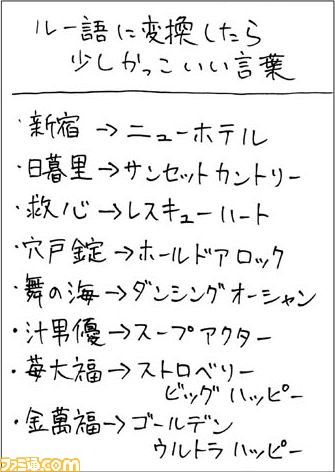 ルー語に変換したら
少しかっこいい言葉
・新宿→ニューホテル
・日暮里→サンセットカントリー
・救心→レスキューハート
・穴戸錠→ホールドアロック
・舞の海→ダンシングオーシャン
・汁男優→スープアクター
・苺大福→ストロベリー
ビッグハッピー
・金萬福→ゴールデン
ウルトラハッピー
ファミ通.com